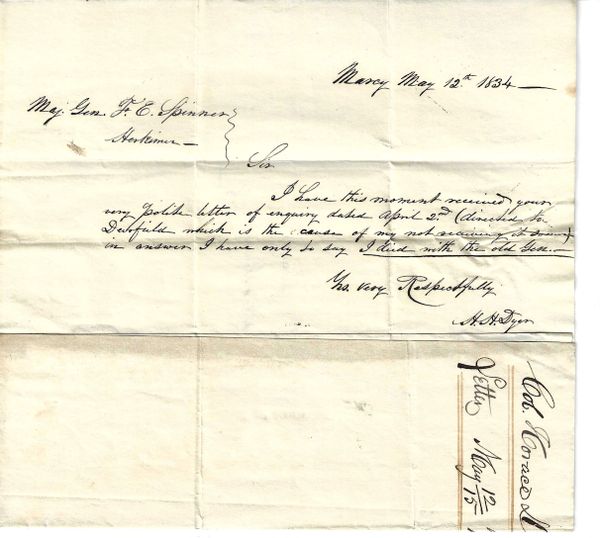 Marcy May 12th 1834
Maj. Gen. F. E. Spinner
Herkimer
Sir
I have this moment received your
very polite letter of enquiry dated April 2nd (directed to
Deerfield which is the cause of my not receiving it sooner)
in answer I have only to say I died with the old Gen.
Yrs. very Respectfully
H. H. Dyer
Col. Horace
Letter May 12
15